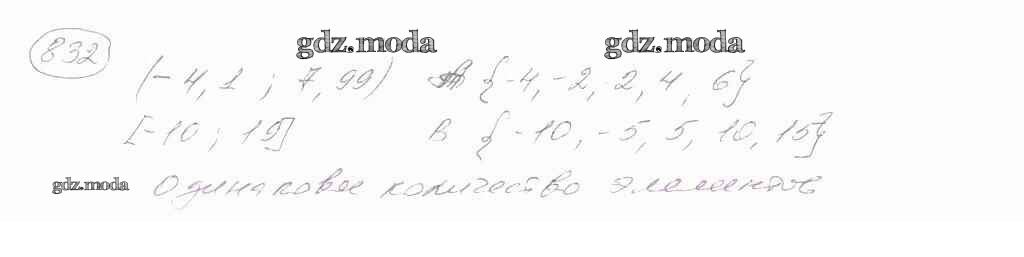 832 gdz.moda gdz.moda
(-4,1 ; 7,99) A {-4, -2, 2, 4, 6}
[-10 ; 19] B {-10, -5, 5, 10, 15}
gdz.moda Одинаковое количество элементов